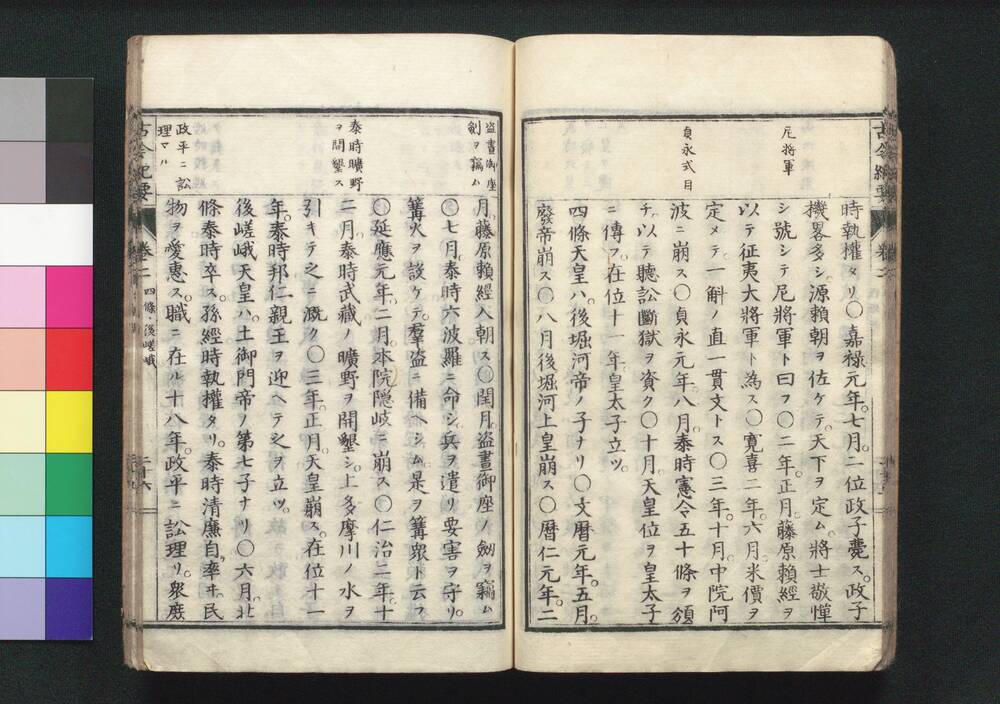 尼將軍
貞永式目
時執權タリ〇嘉祿元年。七月。二位政子薨ス。政子
機畧多シ。源賴朝ヲ佐ケテ。天下ヲ定ム。將士敬憚
シ號シテ尼將軍ト曰フ〇二年。正月。藤原賴經ヲ
以テ征夷大將軍ト為ス〇寬喜二年。六月。米價ヲ
定メテ。一斛ノ直一貫文トス〇三年。十月。中院阿
波ニ崩ス〇貞永元年。八月。泰時憲令五十條ヲ頒
チ。以テ聽訟斷獄ヲ資ク〇十月。天皇位ヲ皇太子
ニ傳フ。在位十一年。皇太子立ツ。
四條天皇ハ。後堀河帝ノ子ナリ〇文曆元年。五月。
廢帝崩ス〇八月後堀河上皇崩ス〇曆仁元年。二
古今紀要
卷二
盜晝御座
劍ヲ竊ム
泰時曠野
ヲ開墾ス
政平ニ訟
理マル
月。藤原賴經入朝ス〇閏月。盜晝御座ノ劔ヲ竊ム
〇七月。泰時六波羅ニ命シ。兵ヲ遣リ要害ヲ守リ。
篝火ヲ設ケテ。羣盜ニ備ヘシム。是ヲ篝眾ト云フ
〇延應元年。二月。本院隠岐ニ崩ス〇仁治二年。十
二月。泰時武藏ノ曠野ヲ開墾シ。上多摩川ノ水ヲ
引キテ之ニ漑ク〇三年。正月。天皇崩ス。在位十一
年。泰時邦仁親王ヲ迎ヘテ之ヲ立ツ。
後嵯峨天皇ハ。土御門帝ノ第七子ナリ〇六月。北
條泰時卒ス。孫經時執權タリ。泰時清廉自ラ率ヰ。民
物ヲ愛惠ス。職ニ在ル十八年。政平ニ訟理リ。眾庶
古今紀要
卷二
四條・後嵯峨
二十六